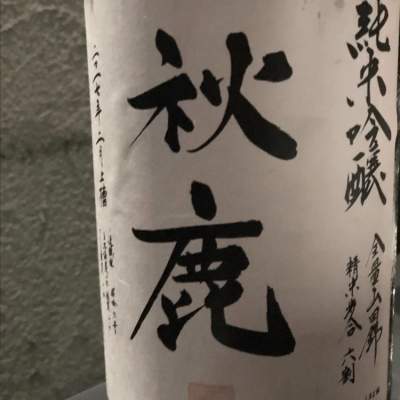 純米吟醸
全量山田錦
精米歩合 六割
秋鹿
二〇一七年二月上槽